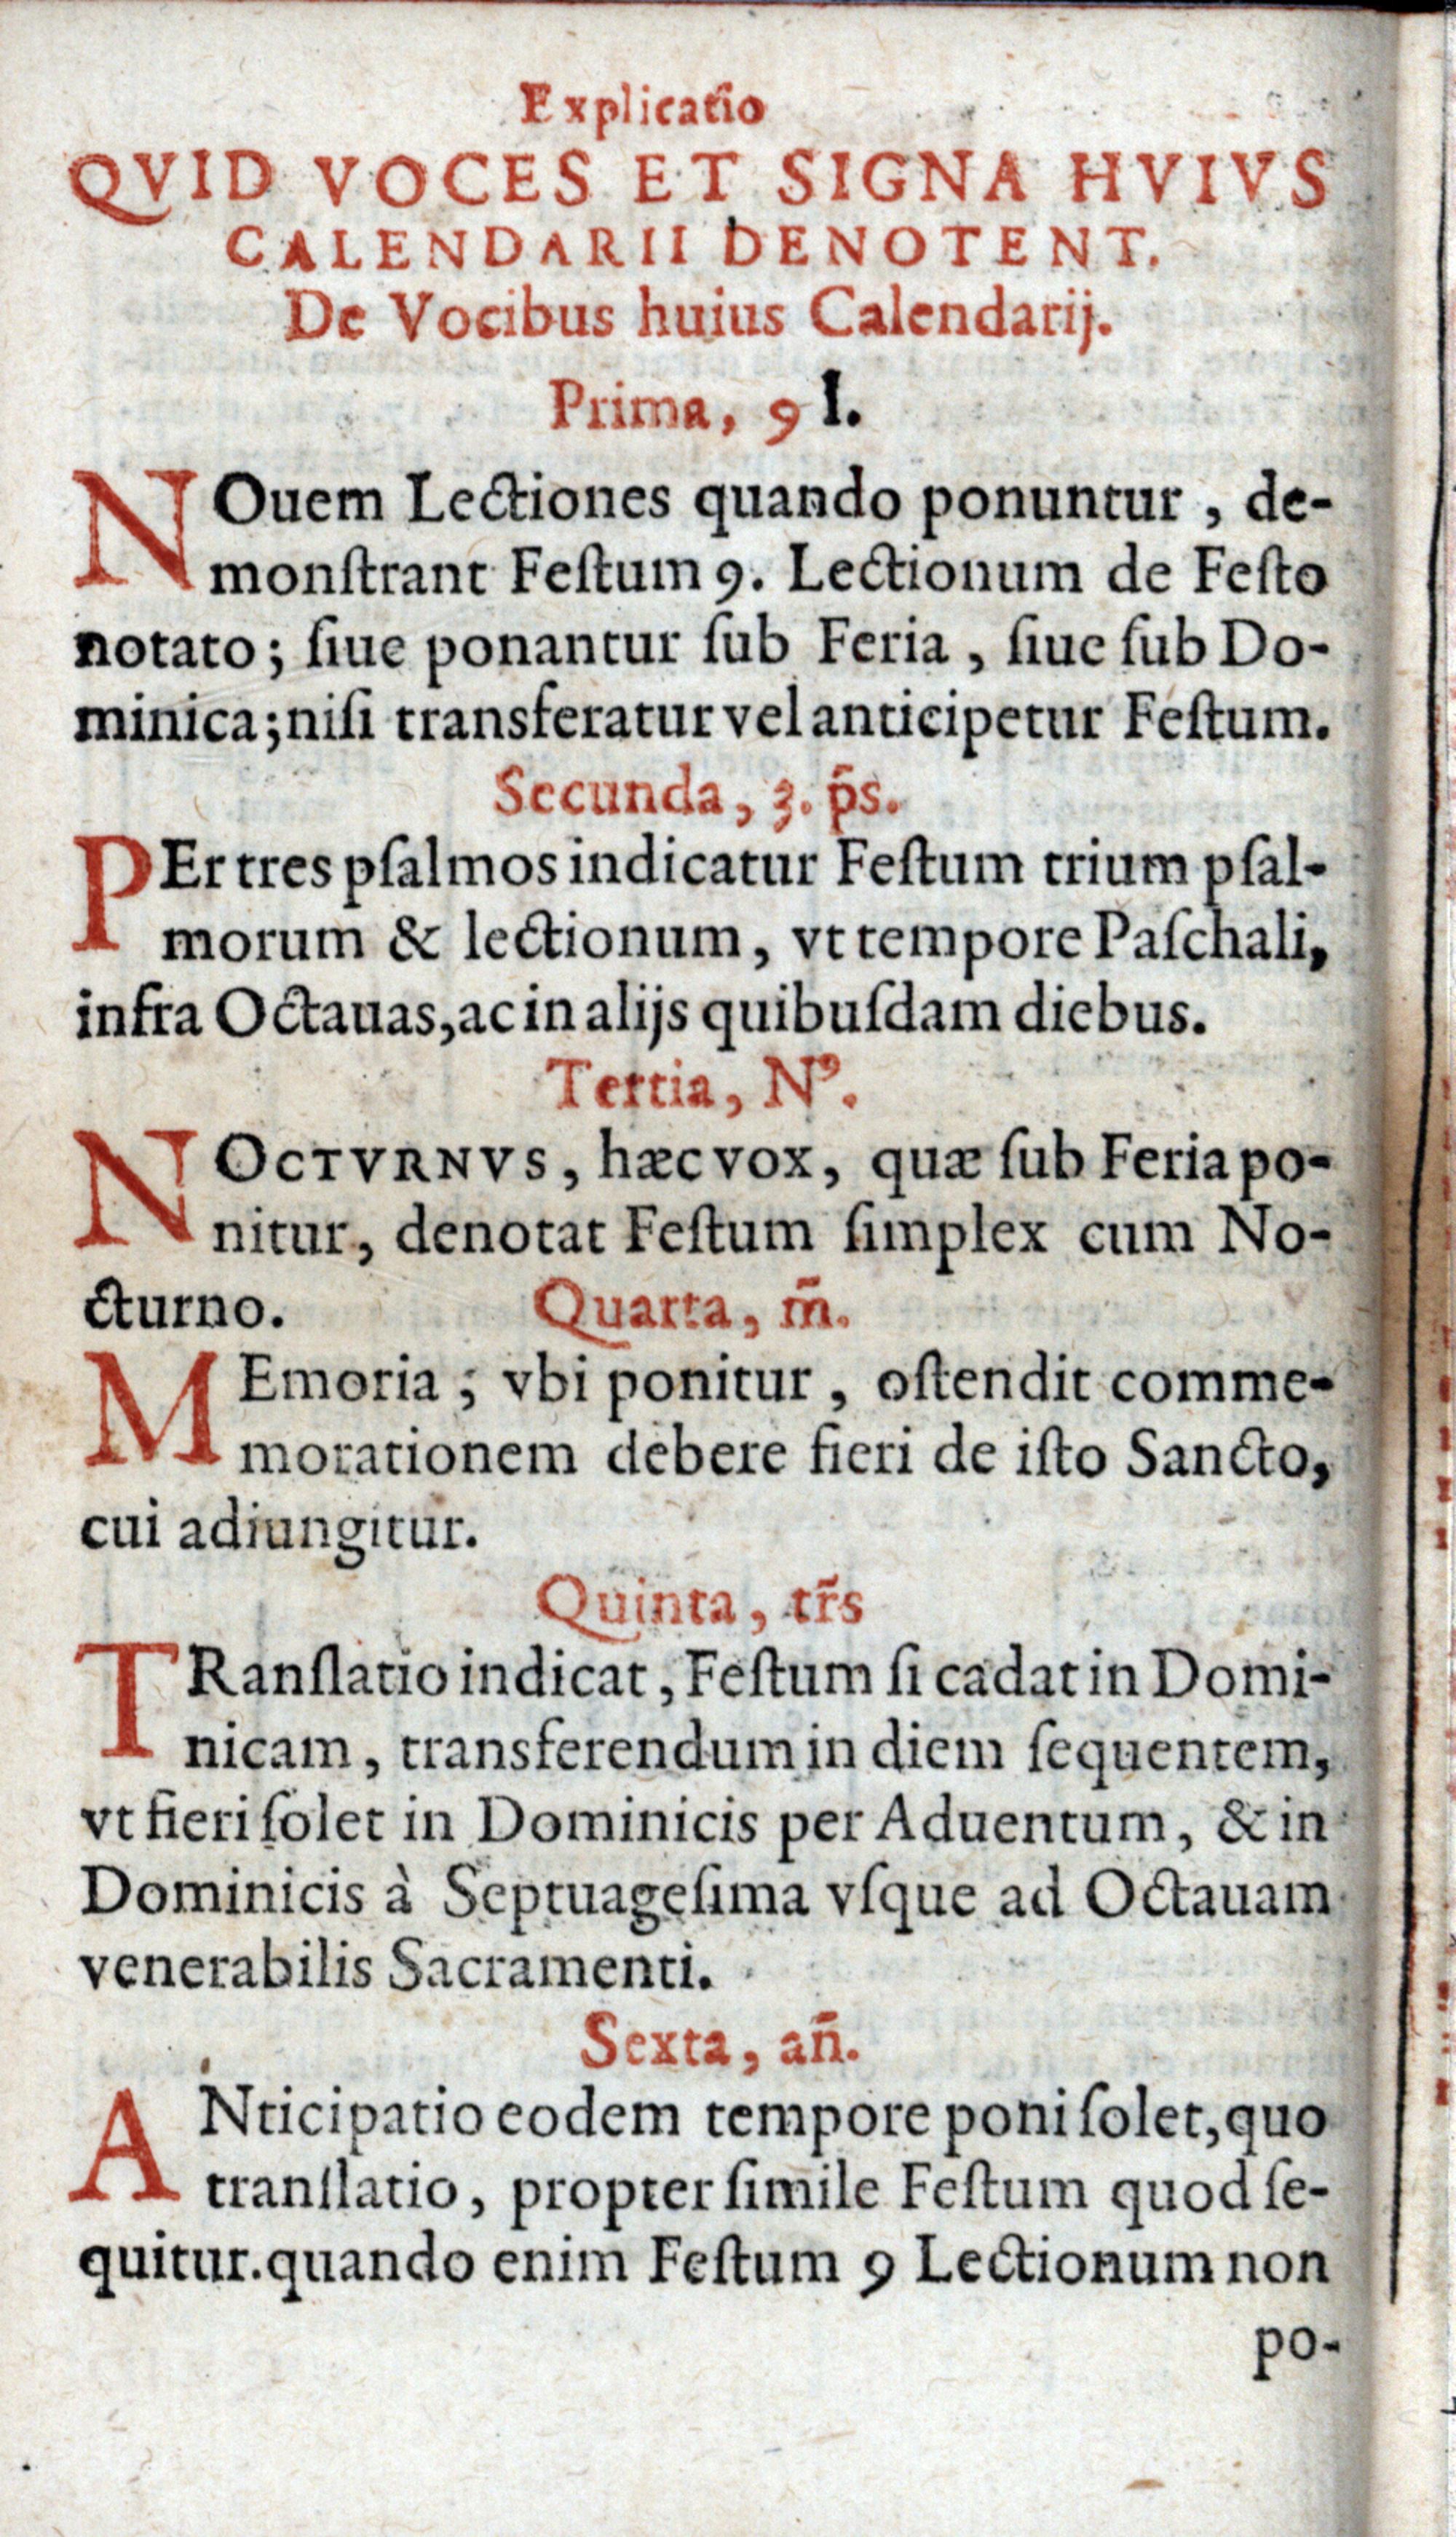 Explicatio
QVID VOCES ET SIGNA HVIVS
CALENDARII DENOTENT.
De Vocibus huius Calendarij.
Prima, 9 l.
NOuem Lectiones quando ponuntur, de-
monſtrant Feſtum 9. Lectionum de Feſto
notato; ſiue ponantur ſub Feria, ſiue ſub Do-
minica; niſi transferatur vel anticipetur Feſtum.
Secunda, 3. p̄s.
PEr tres pſalmos indicatur Feſtum trium pſal-
morum & lectionum, vt tempore Paſchali,
infra Octauas, ac in alijs quibuſdam diebus.
Tertia, Nꝰ.
NOCTVRNVS, hæc vox, quæ ſub Feria po-
nitur, denotat Feſtum ſimplex cum No-
cturno. Quarta, m̄.
MEmoria; vbi ponitur, oſtendit comme-
morationem debere fieri de iſto Sancto,
cui adiungitur.
Quinta, tr̄s
TRanſlatio indicat, Feſtum ſi cadat in Domi-
nicam, transferendum in diem ſequentem,
vt fieri ſolet in Dominicis per Aduentum, & in
Dominicis à Septuageſima vſque ad Octauam
venerabilis Sacramenti.
Sexta, an̄.
ANticipatio eodem tempore poni ſolet, quo
tranſlatio, propter ſimile Feſtum quod ſe-
quitur. quando enim Feſtum 9 Lectionum non
po-